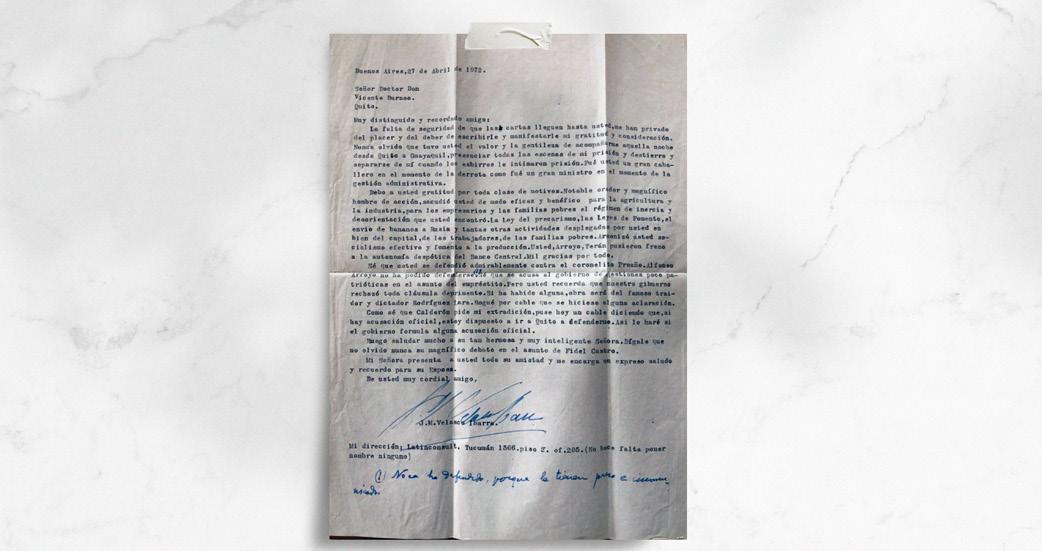 Buenos Aires,27 de Abril de 1972.
Señor Doctor Don
Vicente Burneo.
Quito.
Muy distinguido y recordado amigo:
La falta de seguridad de que las cartas lleguen hasta usted,me han privado
del placer y del deber de escribirle y manifestarle mi gratitud y consideración.
Nunca olvido que tuvo usted el valor y la gentileza de acompañarme aquella noche
desde Quito a Guayaquil,presenciar todas las escenas de mi prisión y destierro y
separarse de mí cuando los esbirros le intimaron prisión.Fué usted un gran caba-
llero en el momento de la derrota como fué un gran ministro en el momento de la
gestión administrativa.
Debo a usted gratitud por toda clase de motivos.Notable orador y magnífico
hombre de acción,sacudió usted de modo eficaz y benéfico para la agricultura y
la industria,para los empresarios y las familias pobres el régimen de inercia y
desorientación que usted encontró.La Ley del precarismo,las Leyes de Fomento,el
envío de bananos a Rusia y tantas otras actividades desplegadas por usted en
bien del capital,de los trabajadores,de las familias pobres.Armonizó usted so-
cialismo efectivo y fomento a la producción.Usted,Arroyo,Terán pusieron freno
a la autonomía despótica del Banco Central.Mil gracias por todo.
Sé que usted se defendió admirablemente contra el coronelito Proaño.Alfonso
Arroyo no ha podido defenderse. que se acusa al gobierno de gestiones poco pa-
trióticas en el asunto del empréstito.Pero usted recuerda que nuestro gibuerno
rechazó toda cláusula deprimente.Si ha habido alguna,obra será del famoso trai-
dor y dictador Rodríguez Lara.Rogué por cable que se hiciese alguna aclaración.
Como sé que Calderón pide mi extradición,puse hoy un cable diciendo que,si
hay acusación oficial,estoy dispuesto a ir a Quito a defenderme.Así lo haré si
el gobierno formula alguna acusación oficial.
Ruego saludar mucho a su tan hermosa y muy inteligente Señora.Dígale que
no olvido nunca su magnífico debate en el asunto de Fidel Castro.
Mi Señora presenta a usted toda su amistad y me encarga un expreso saludo
y recuerdo para su Esposa.
De usted muy cordial amigo,
J.M.Velasco Ibarra.
Mi dirección; Latinconsult. Tucumán 1506.piso of.205.(No hace falta poner
nombre ninguno)
(1) No se ha defendido, porque le tienen preso e incomu-
nicado.